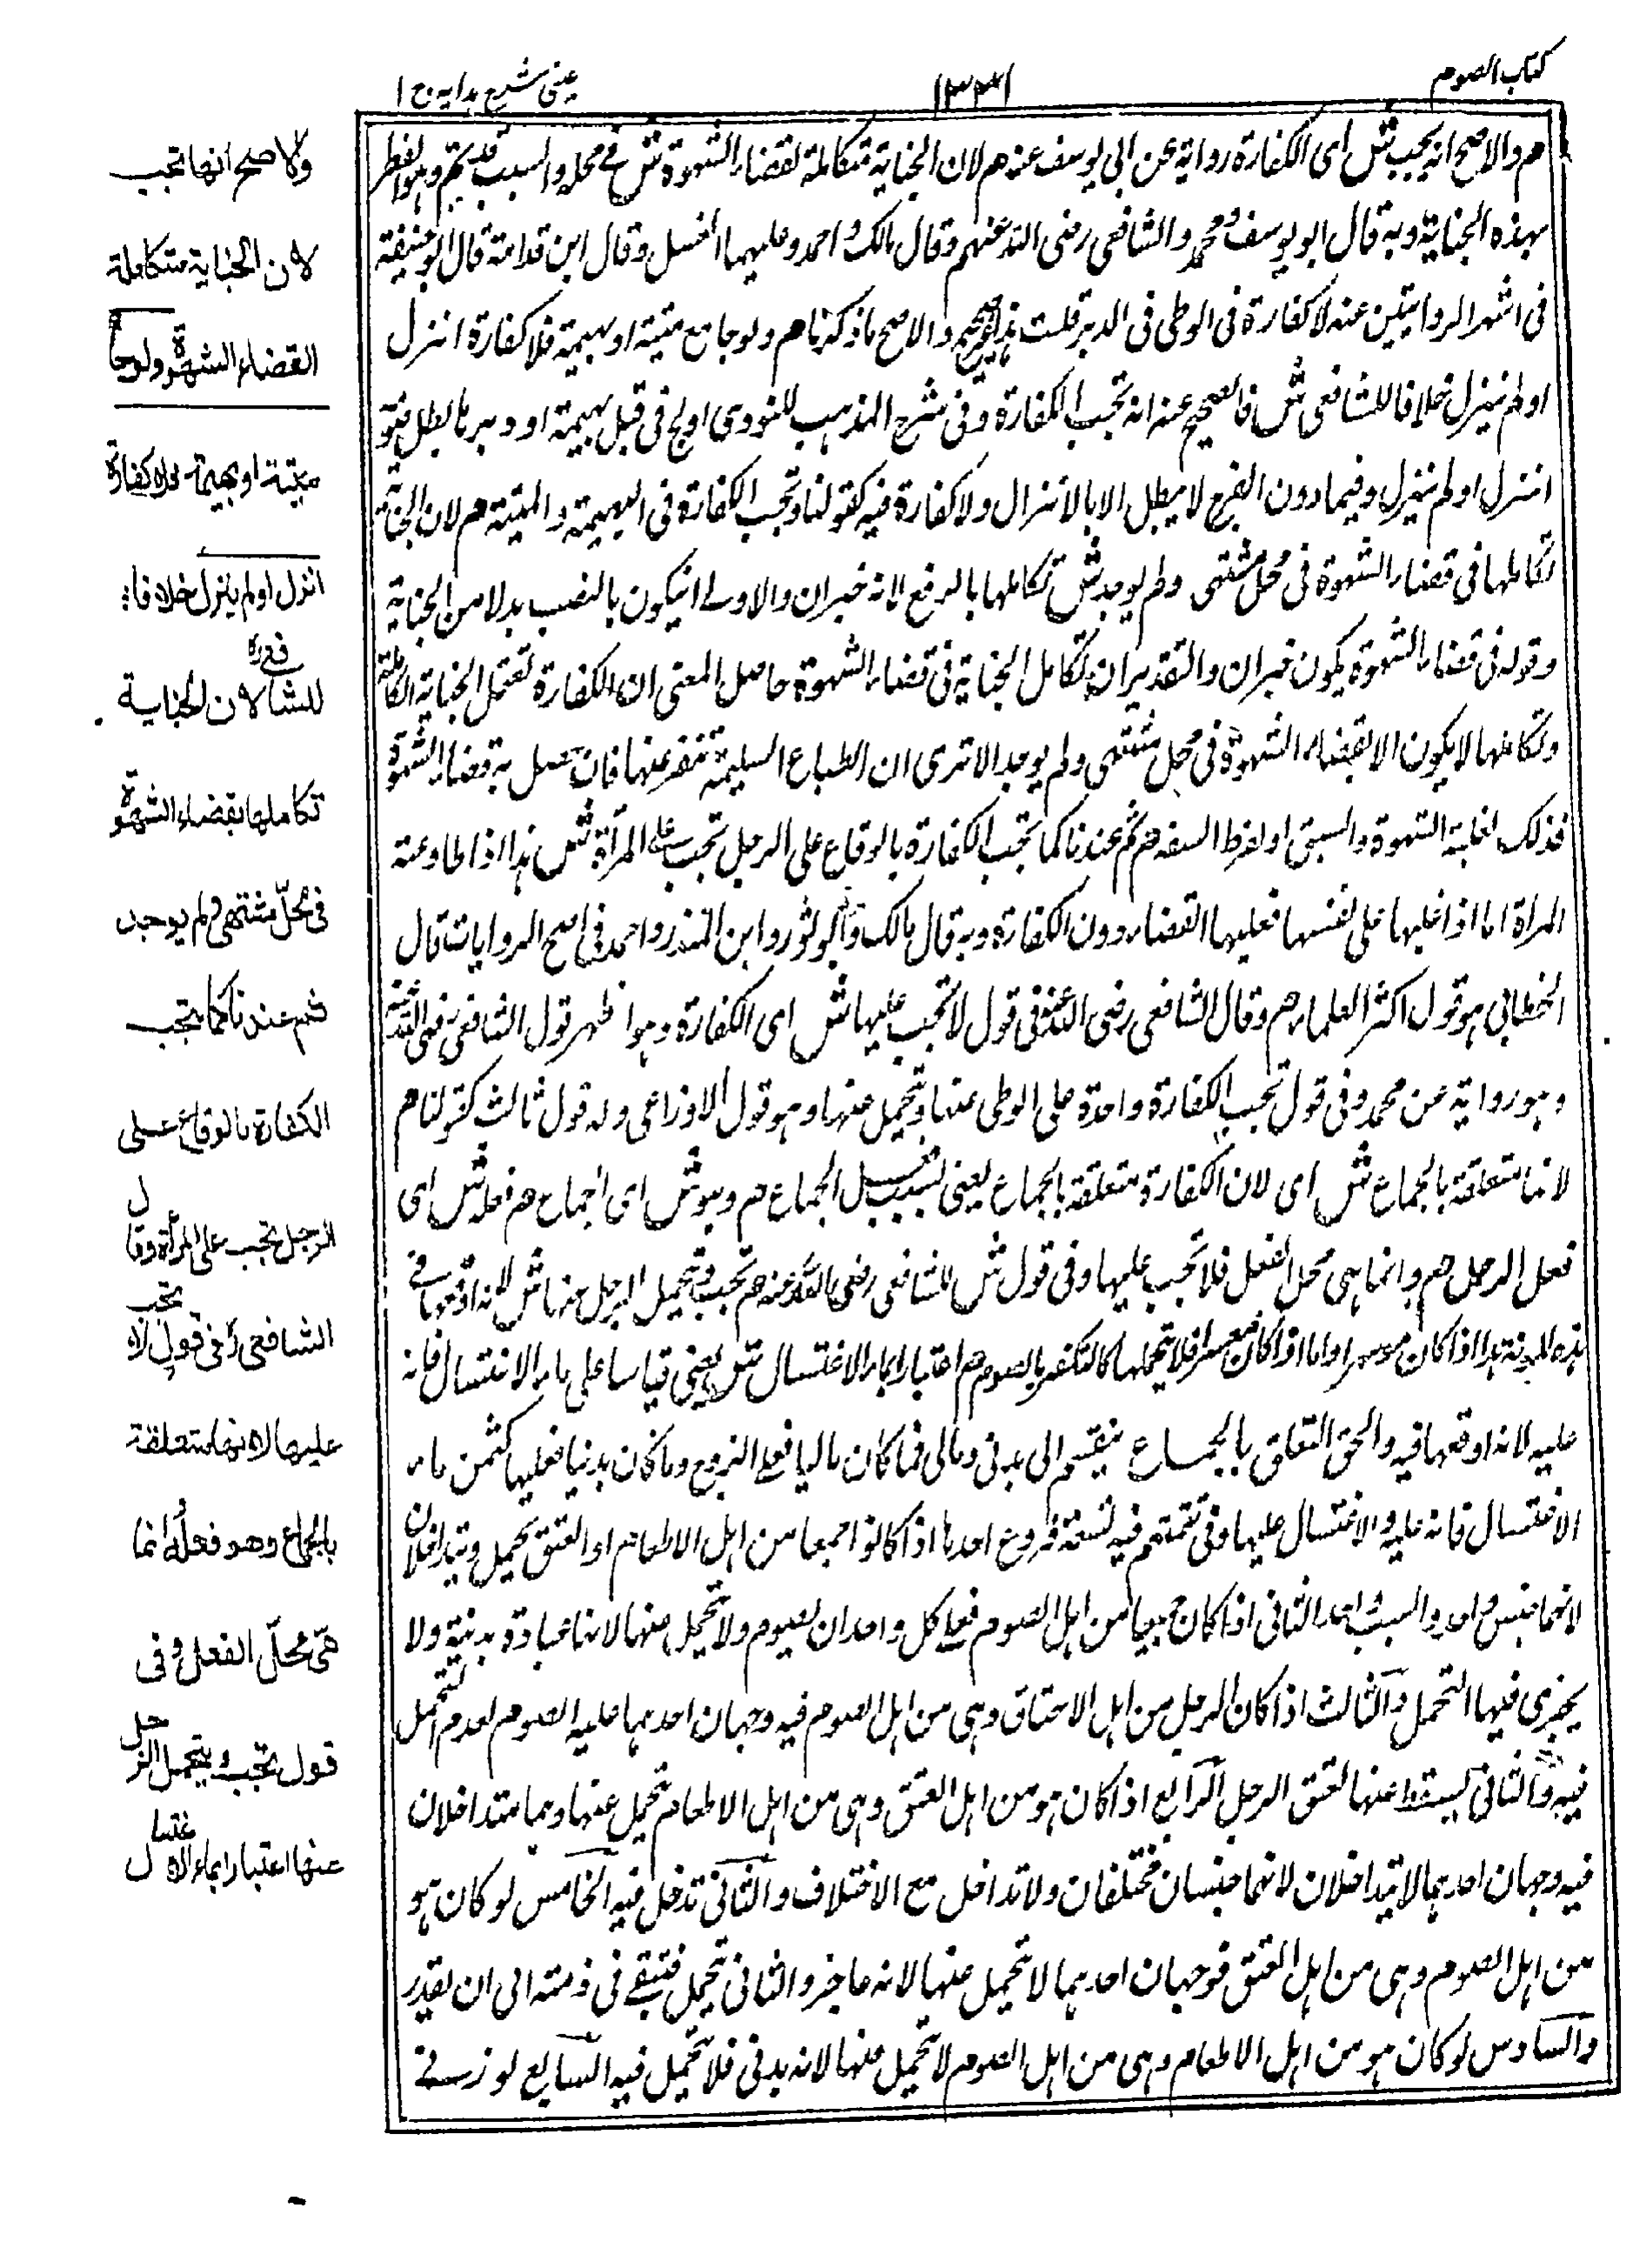 كتاب الصوم
١٣٣١
عينى شرح هدايه ج ١
هم والاصح انه يجب ش اى الكفارة رواية عن ابى يوسف عنه هم لان الجناية متكاملة لقضاء الشهوة ش فى محله والسبب قد تم وهو الفطر
بهذه الجناية وبه قال ابو يوسف ومحمد والشافعى رضى الله عنهم وقال مالك واحمد وعليهما الغسل وقال ابن قدامة قال ابو حنيفة
فى اشهر الروايتين عنه لا كفارة فى الوطى فى الدبر قلت هذا والاصح ما ذكرنا هم ولو جامع ميتة او بهيمة فلا كفارة انزل
او لم ينزل خلافا للشافعى ش فالصحيح عنه انه تجب الكفارة وفى شرح المهذب للنووى اولج فى قبل بهيمة او دبرها بطل صومه
انزل او لم ينزل وفيما دون الفرج لا يبطل الا بالانزال ولا كفارة فيه كقولنا وتجب الكفارة فى البهيمة والميتة هم لان الجناية
تكاملها فى قضاء الشهوة فى محل مشتهى ولم يوجد ش تكاملها بالرفع لانه خبر ان والاولى ان يكون بالنصب بدلا من الجناية
وقوله فى قضاء الشهوة يكون خبر ان والتقدير ان تكامل الجناية فى قضاء الشهوة حاصل المعنى ان الكفارة تعتمل الجناية الكاملة
وتكاملها لا يكون الا بقضاء الشهوة فى محل مشتهى ولم يوجد الا ترى ان الطباع السليمة تنفر عنها فان حصل به قضاء الشهوة
فذلك لغلبة الشهوة والسبق او لفرط السفه هم ثم عندنا كما تجب الكفارة بالوقاع على الرجل تجب على المرأة ش هذا اذا طاوعته
المرأة اما اذا غلبها على نفسها فعليها القضاء دون الكفارة وبه قال مالك وابو ثور وابن المنذر واحمد فى اصح الروايات قال
الخطابى هو قول اكثر العلماء هم وقال الشافعى رضى الله عنه فى قول لا تجب عليها ش اى الكفارة وهو اظهر قول الشافعى رضى الله عنه
وهو رواية عن محمد وفى قول تجب الكفارة واحدة على الوطى عنها ويحمل عنها وهو قول الاوزاعى وله قول ثالث كقولنا هم
لانها متعلقة بالجماع ش اى لان الكفارة متعلقة بالجماع يعنى بسبب الجماع هم وهو ش اى الجماع هم فعله ش اى
فعل الرجل هم وانما هى محل الفعل فلا تجب عليها وفى قول ش للشافعى رضى الله عنه هم تجب ويتحمل الرجل عنها ش لانه اوقعها فى
هذه المونة هذا اذا كان موسرا واما اذا كان معسرا فلا يتحملها كالتكفير بالصوم هم اعتبارا بماء الاغتسال ش يعنى قياسا على ماء الاغتسال فانه
عليه لانه اوقعها فيه والحق المتعلق بالجماع ينقسم الى بدنى ومالى فما كان ماليا فعلى الزوج وما كان بدنيا فعليها كثمن ماء
الاغتسال فانه عليه والاغتسال عليها وفى تتمتهم فيه تسعة فروع احدها اذا كانوا جميعا من اهل الاطعام او العتق يحمل ويتداخلان
لانهما جنس واحد والسبب واحد الثانى اذا كان جميعا من اهل الصوم فعلى كل واحد ان يصوم ولا يتحمل عنها لانها عبادة بدنية ولا
يجزى فيها التحمل والثالث اذا كان الرجل من اهل الاعتاق وهى من اهل الصوم فيه وجهان احدهما عليه الصوم لعدم التحمل
فيه والثانى يسقط عنها لعتق الرجل الرابع اذا كان هو من اهل العتق وهى من اهل الاطعام يحمل عنها وهما متداخلان
فيه وجهان احدهما لا يتداخلان لانهما جنسان مختلفان ولا تداخل مع الاختلاف والثانى تدخل فيه الخامس لو كان هو
من اهل الصوم وهى من اهل العتق فوجهان احدهما لا يتحمل عنها لانه عاجز والثانى يتحمل فتبقى فى ذمته الى ان يقدر
والسادس لو كان هو من اهل الاطعام وهى من اهل الصوم لا يتحمل عنها لانه بدنى فلا يتحمل فيه السابع لو زنى
والاصح انها تجب
لان الجناية متكاملة
لقضاء الشهوة ولو جا
ميتة او بهيمة فلا كفارة
انزل او لم ينزل خلافا
للشافعى ره لان الجناية
تكاملها بقضاء الشهوة
فى محلّ مشتهى ولم يوجد
ثم عندنا كما تجب
الكفارة بالوقاع على
الرجل تجب على المرأة وقال
الشافعى رح فى قول لا تجب
عليها لانها متعلقة
بالجماع وهو فعله وانما
هى محلّ الفعل وفى
قول تجب ويتحمل الرجل
عنها اعتبارا بماء الاغتسال